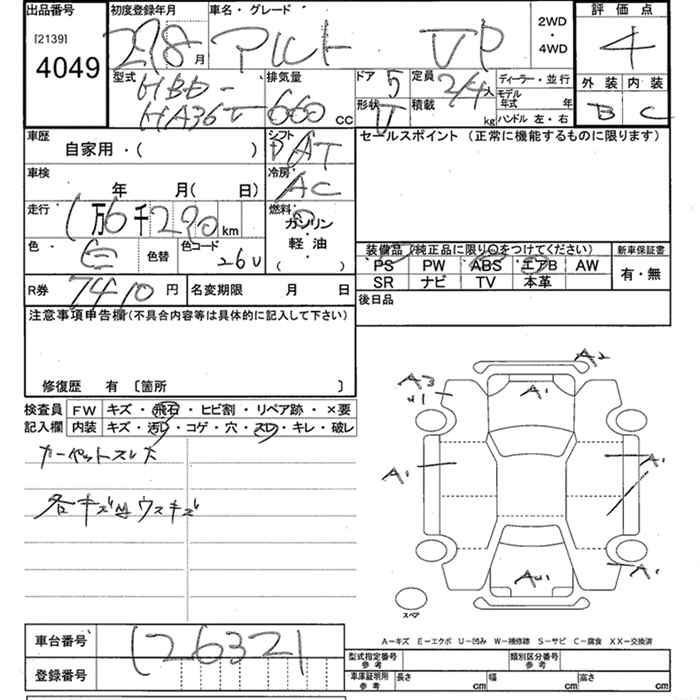 出品番号 初度登録年月 車名・グレード 2WD・4WD 評価点
[2139]
4049 28 月 アルト VP 4
型式 HBD-HA36V 排気量 660cc ドア 5 定員 2/4人 ディーラー・並行 外装 内装
形状 V 積載 kg モデル年式 年 ハンドル 左・右 B C
車歴 自家用・( ) シフト AT セールスポイント(正常に機能するものに限ります)
車検 年 月( 日) 冷房 AC
走行 1万6千290km 燃料 ガソリン
軽油
( )
色 色替 色コード 26U 装備品(純正品に限り○をつけてください) 新車保証書
PS PW ABS エアB AW 有・無
SR ナビ TV 本革
R券 7410円 名変期限 月 日 後日品
注意事項申告欄(不具合内容等は具体的に記入して下さい)
修復歴 有 〔箇所 〕
検査員 FW キズ・飛石・ヒビ割・リペア跡・×要
記入欄 内装 キズ・汚れ・コゲ・穴・スレ・キレ・破レ
カーペットスレ大
各キズ凹ウスキズ
A2
A3
U1
A1
A1
A1
A1
スペア
A-キズ E-エクボ U-凹み W-補修跡 S-サビ C-腐食 XX-交換済
車台番号 126321 型式指定番号 参考 類別区分番号 参考
登録番号 車庫証明用 参考 長さ cm 幅 cm 高さ cm